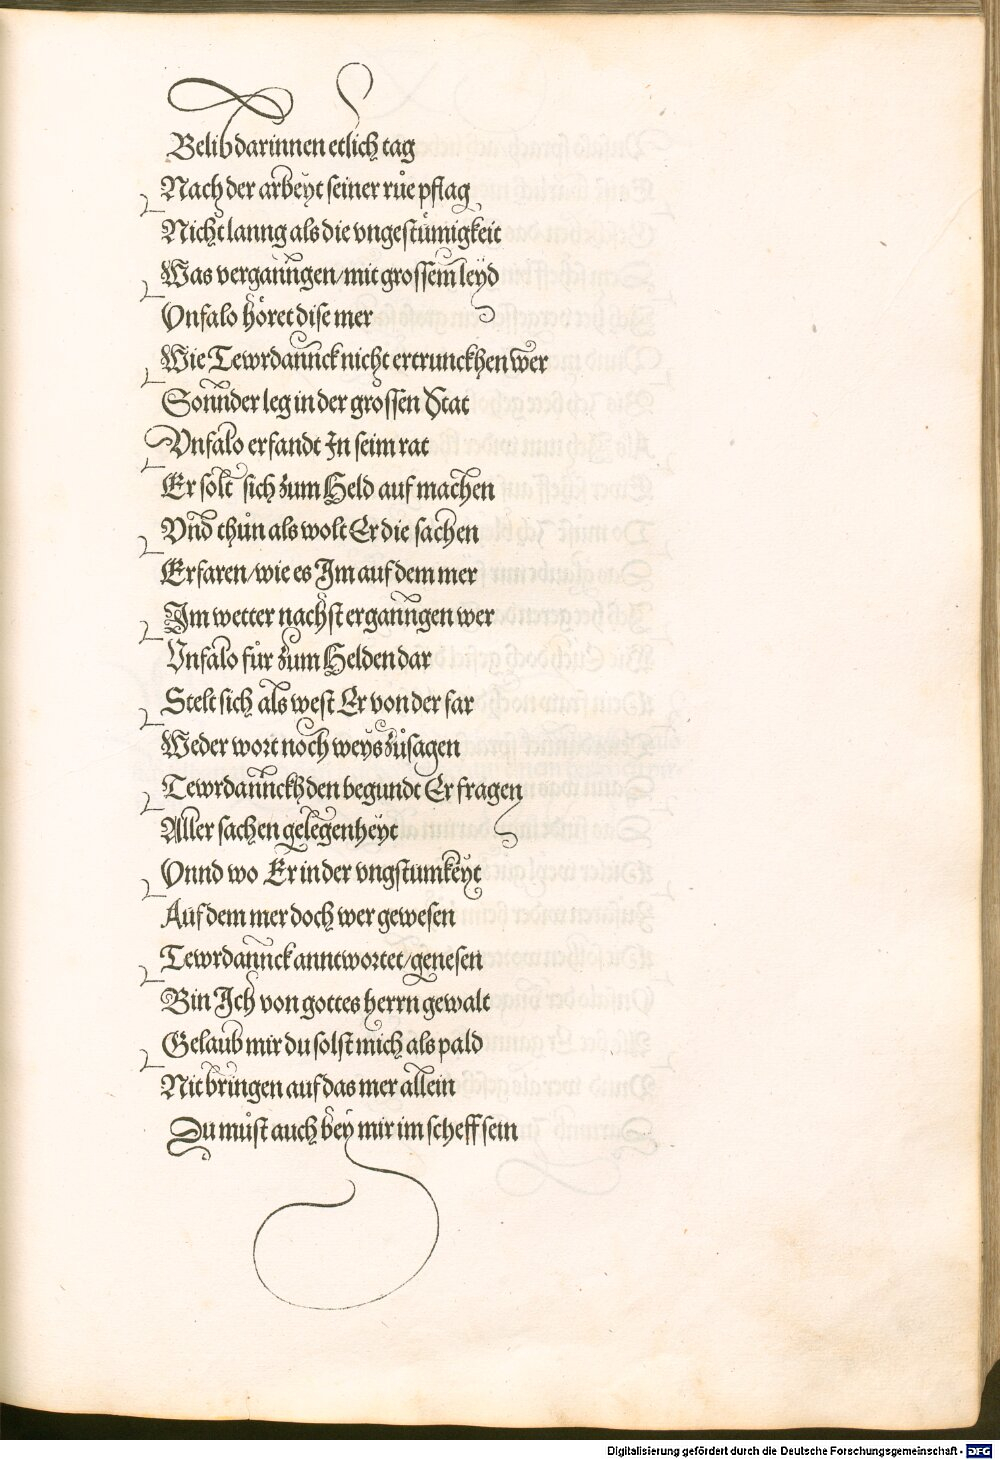 Belib darinnen etlich tag
Nach der arbeyt seiner růe pflag
Nicht lanng als die vngestůmigkeit
Was verganngen/mit grossem leyd
Vnfalo höret dise mer
Wie Tewrdannck nicht ertrunckhen wer
Sonnder leg in der grossen Stat
Vnfalo erfandt In seim rat
Er solt sich zum Held auf machen
Vnd thůn als wolt Er die sachen
Erfaren/wie es Im auf dem mer
Im wetter nächst erganngen wer
Vnfalo fůr zum Helden dar
Stelt sich als west Er von der far
Weder wort noch weys zůsagen
Tewrdannckh den begundt Er fragen
Aller sachen gelegenheyt
Vnnd wo Er in der vngstumkeyt
Auf dem mer doch wer gewesen
Tewrdannck anntwortet/genesen
Bin Ich von gottes herrn gewalt
Gelaub mir du solst mich als pald
Nit bringen auf das mer allein
Du můst auch bey mir im scheff sein
Digitalisierung gefördert durch die Deutsche Forschungsgemeinschaft - DFG